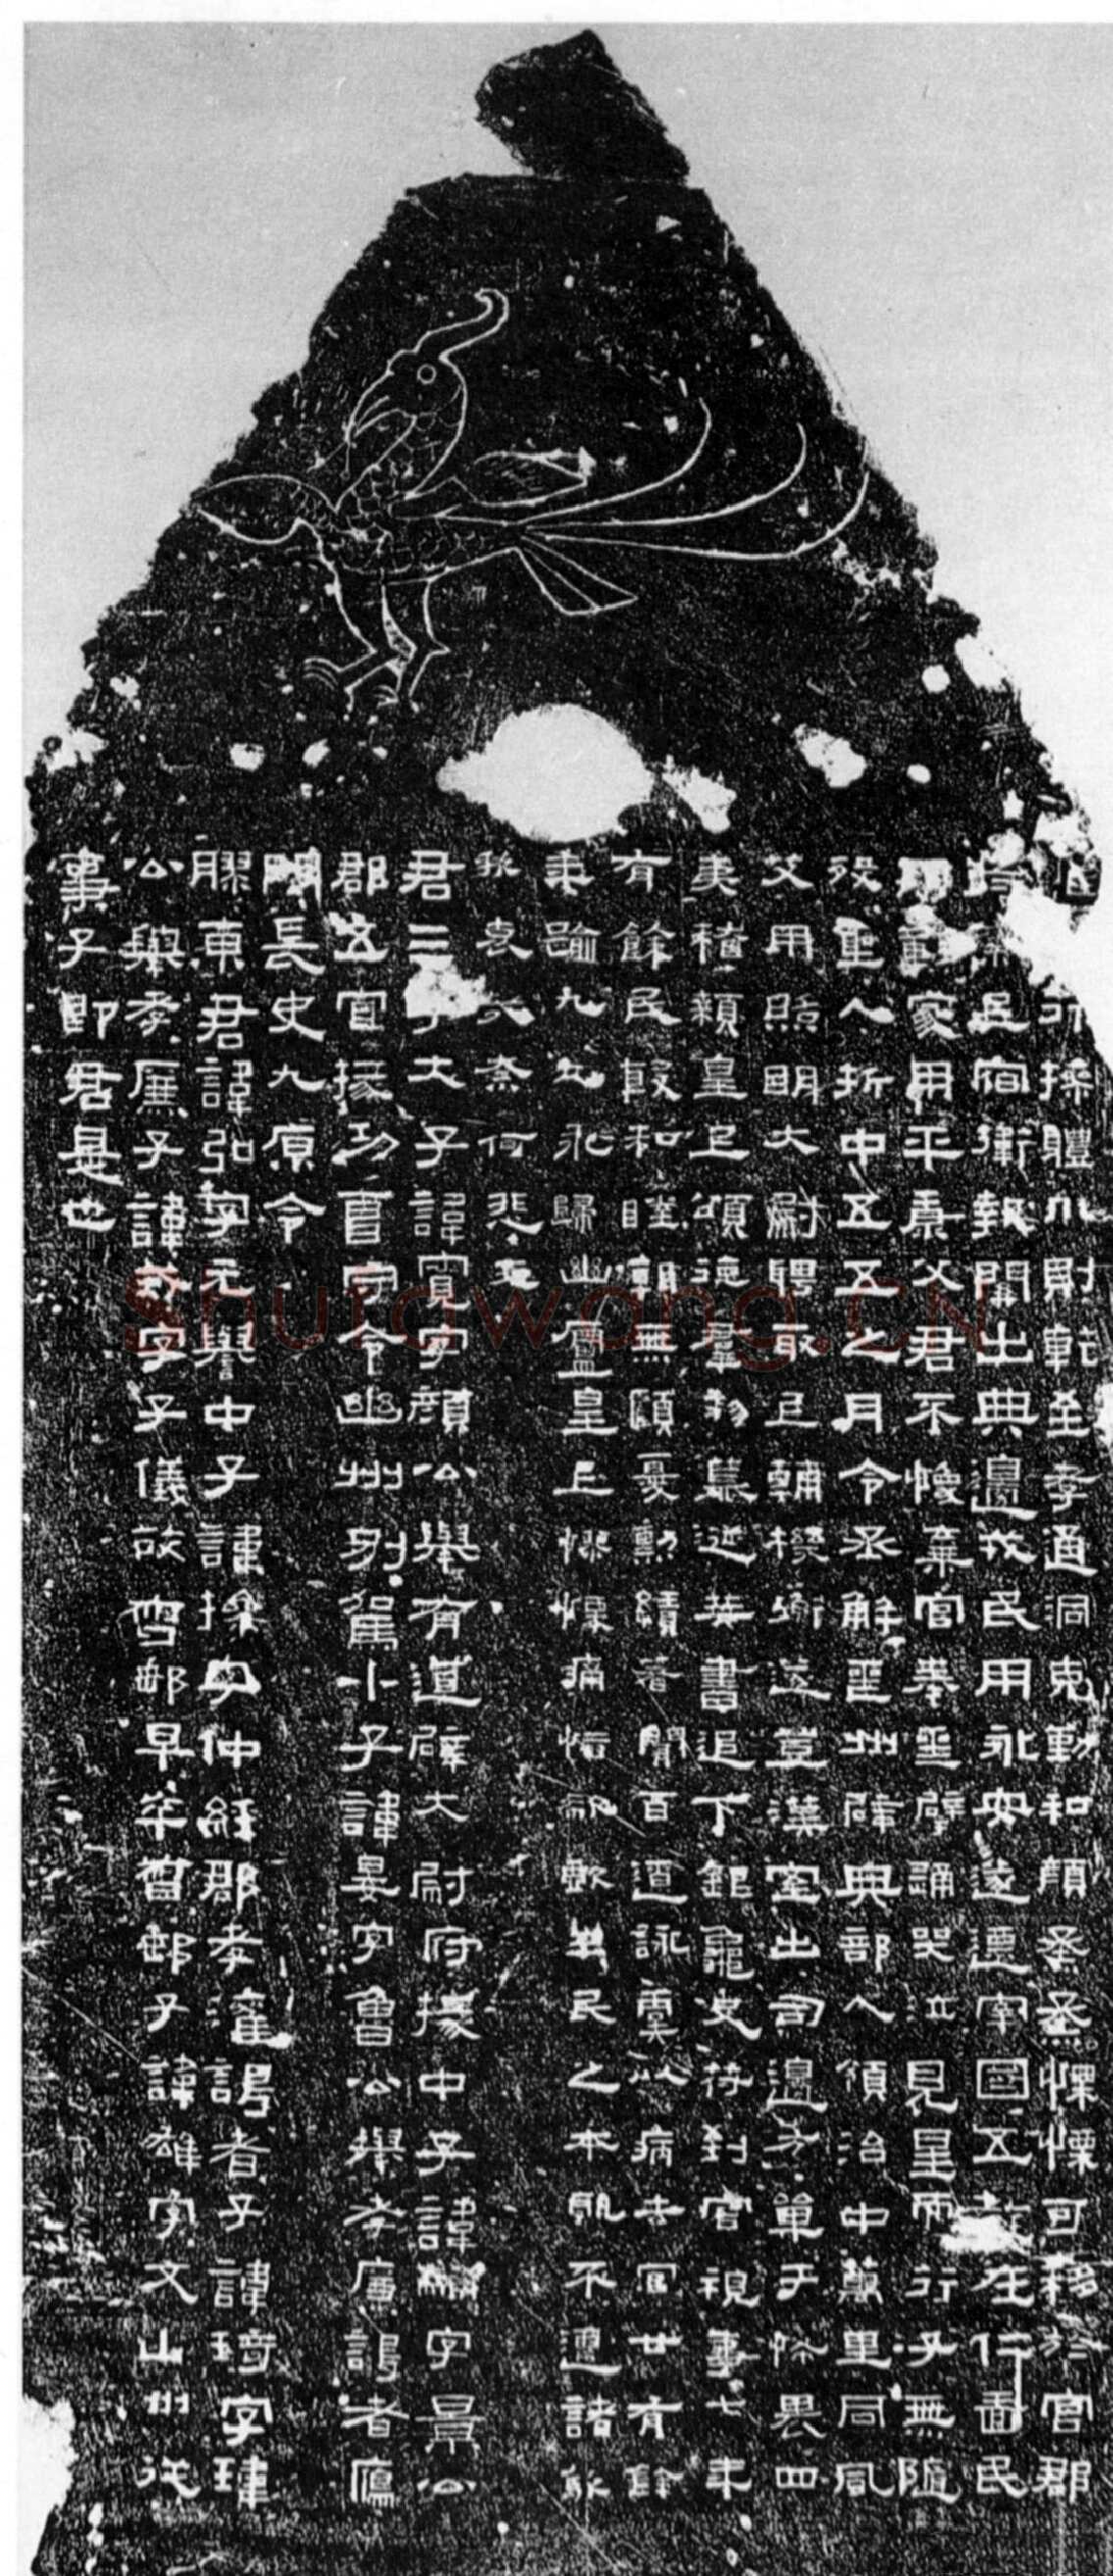 行操體仁則乾至孝通洞克勤和顏烝烝慄慄可移於官郡
民宿衛報關出典邊戎民用永安遂遷宰國五教在仁嗇民
家用平康父君不愎棄官奉喪辟踊哭泣見星而行子無隨
歿聖人折中五五之月令丞解喪州辟典部入領治中萬里同風
艾用照明大尉聘取上輔機衡遂登漢室出司邊方單于怖畏四
夷稽顙皇上頌德群黎慕涎策書追下銀龜史符到官視事七年
有餘民殷和睦朝無顧憂勳績著聞百遼詠虞以病去官廿有餘
年踰九九永歸幽廬皇上憀慄痛惜欷歔 民之本肌不遑諸
孫哀 奈何悲夫
君三子大子諱寬字顏公舉有道辟大尉府掾中子諱黼字景公
郡五官掾功曹守令幽州別駕小子諱晏字魯公舉孝廉謁者鴈
門長史九原令
膠東君諱弘字元譽中子諱操字仲經郡孝灌謁者子諱琦字瑋
公舉孝廉子諱式字子儀故督郵早卒督郵子諱雄字文山州從
事子即君是也
Shufawang.CN